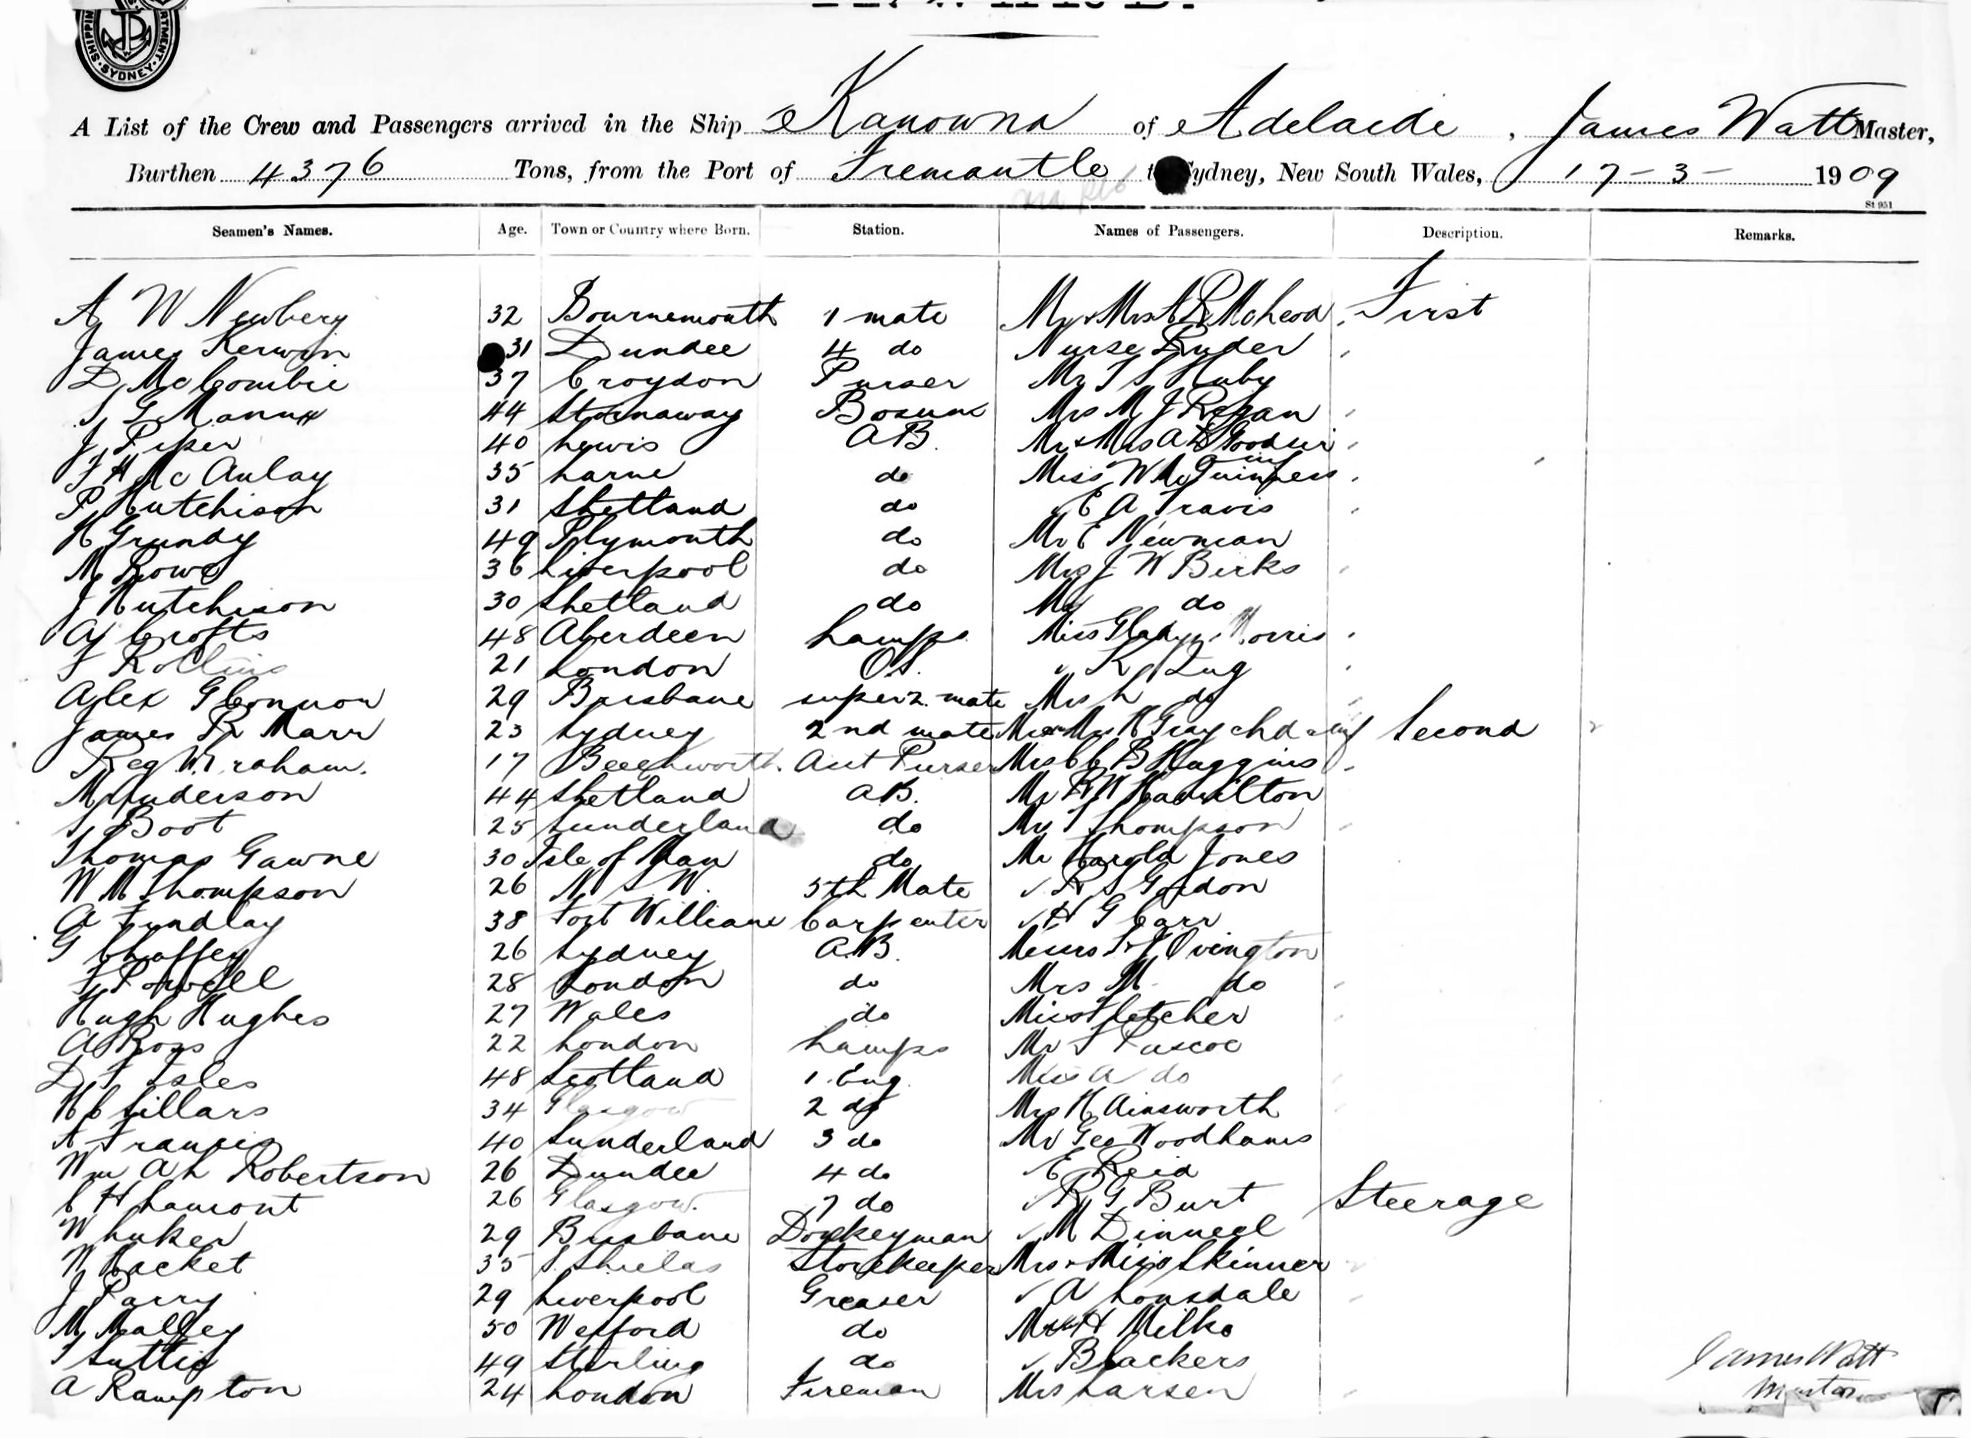 SHIPPING DEPARTMENT SYDNEY
A List of the Crew and Passengers arrived in the Ship Kanowna of Adelaide, James Watt Master,
Burthen 4376 Tons, from the Port of Fremantle Sydney, New South Wales, 17-3-1909
St 951
Seamen's Names. Age. Town or Country where Born. Station. Names of Passengers. Description. Remarks.
A W Newbery 32 Bournemouth 1 mate Mr & Mrs A R McLeod First
James Kerwin 31 Dundee 4 do Nurse Ryder
D McCombie 37 Croydon Purser Mr T S Huby
44 Stornaway Bosun Mrs M J Regan
J Piper 40 Lewis AB. Mr & Mrs A D
McAulay 35 Larne do Miss W McGuinness
P Hutchison 31 Shetland do E A Travis
H Grundy 49 Plymouth do Mr E Newman
M Rowe 36 Liverpool do Mrs J W Birks
J Hutchison 30 Shetland do Mr do
A J Crofts 48 Aberdeen Lamps Miss Gladys Morris
F Rollins 21 London OS. K
Alex G Connon 29 Brisbane super 2 mate Mrs L do
James R Marr 23 Sydney 2nd mate Mr & Mrs H Gray chd & inf Second
Reg W Graham. 17 Beechworth. Asst Purser Mrs C C B Huggins
M Anderson 44 Shetland AB. Mr R W Hamilton
S Boot 25 Sunderland do Mr T Thompson
Thomas Gawne 30 Isle of Man do Mr Harold Jones
W M Thompson 26 N S W. 5th Mate R S Gordon
A Fundlay 38 Fort William Carpenter H G Carr
G Chaffey 26 Sydney A.B. Messrs Ovington
F Powell 28 London do Mrs M do
Hugh Hughes 27 Wales do Miss Fletcher
A Ross 22 London Lamps Mr T Pascoe
D F Isles 48 Scotland 1 Eng. Miss A do
H C Sillars 34 Glasgow 2 do Mrs H Ainsworth
A Francis 40 Sunderland 3 do Mr Geo Woodhams
Wm A L Robertson 26 Dundee 4 do E Reid
C H Lamont 26 Glasgow. 7 do R G Burt Steerage
W Luker 29 Brisbane Donkeyman M Dinneel
W Hacket 35 S. Shields Storekeeper Mrs & Miss Skinner
J Parry 29 Liverpool Greaser A Lonsdale
M Malley 50 Wexford do H Milke
T Suttie 49 Stirling do Blackers
A Rampton 24 London Fireman Mrs Larsen
James Watt
Master